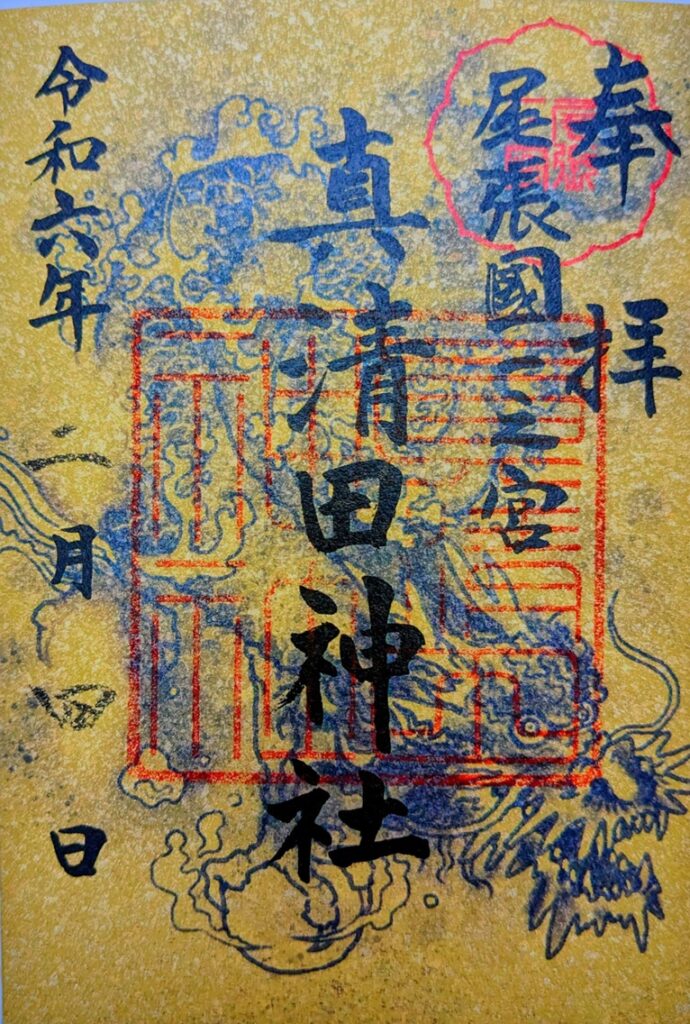 奉拝
尾張國一之宮
真清田神社
令和六年二月四日